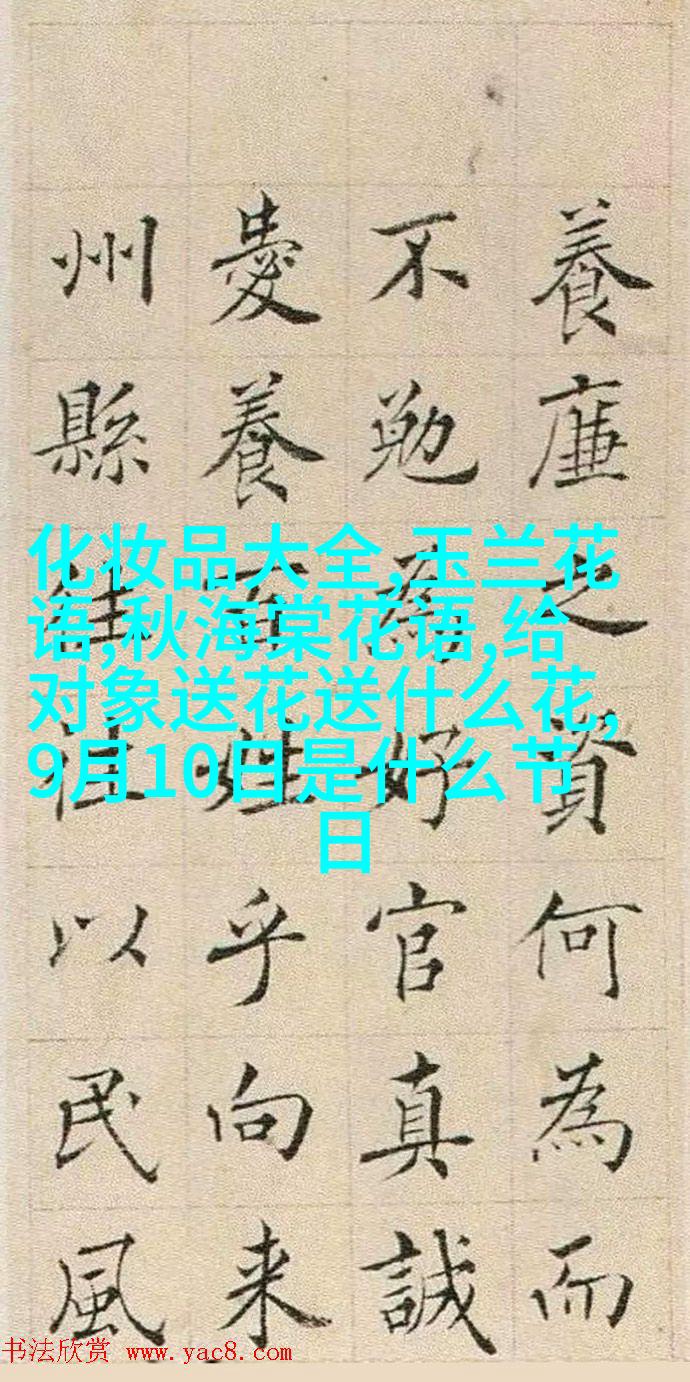 養廉之資何為而
不勉為好官真誠
愛養百姓乎向来
州縣往往以民風
化妆品大全,玉兰花
语,秋海棠花语,给
对象送花送什么花,
9月10日是什么节
日
书法欣赏 www.yac8.com